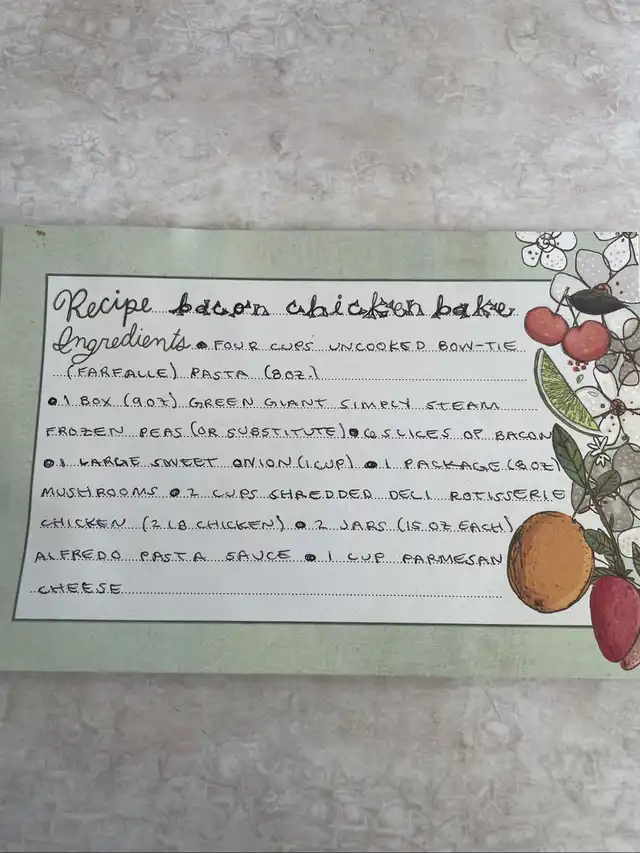 Recipe bacon chicken bake
Ingredients • FOUR CUPS UNCOOKED BOW-TIE
(FARFALLE) PASTA (8OZ.)
• 1 BOX (9OZ) GREEN GIANT SIMPLY STEAM
FROZEN PEAS (OR SUBSTITUTE) • 6 SLICES OF BACON
• 1 LARGE SWEET ONION (1 CUP) • 1 PACKAGE (8 OZ)
MUSHROOMS • 2 CUPS SHREDDED DELI ROTISSERIE
CHICKEN (2 LB CHICKEN) • 2 JARS (15 OZ EACH)
ALFREDO PASTA SAUCE • 1 CUP PARMESAN
CHEESE